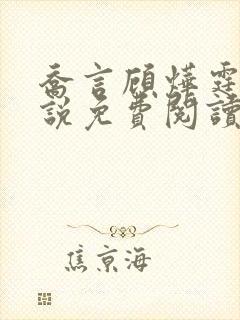 喬言顧燁霆
說免費閱讀
焦京海